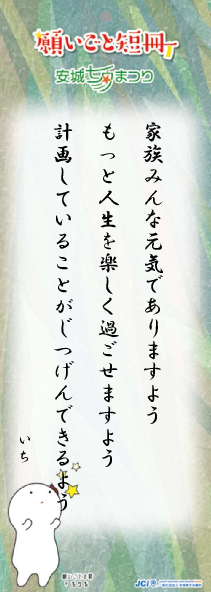 願いごと短冊
安城七夕まつり
家族みんな元気でありますよう
もっと人生を楽しく過ごせますよう
計画していることがじつげんできるよう
いち
JCI